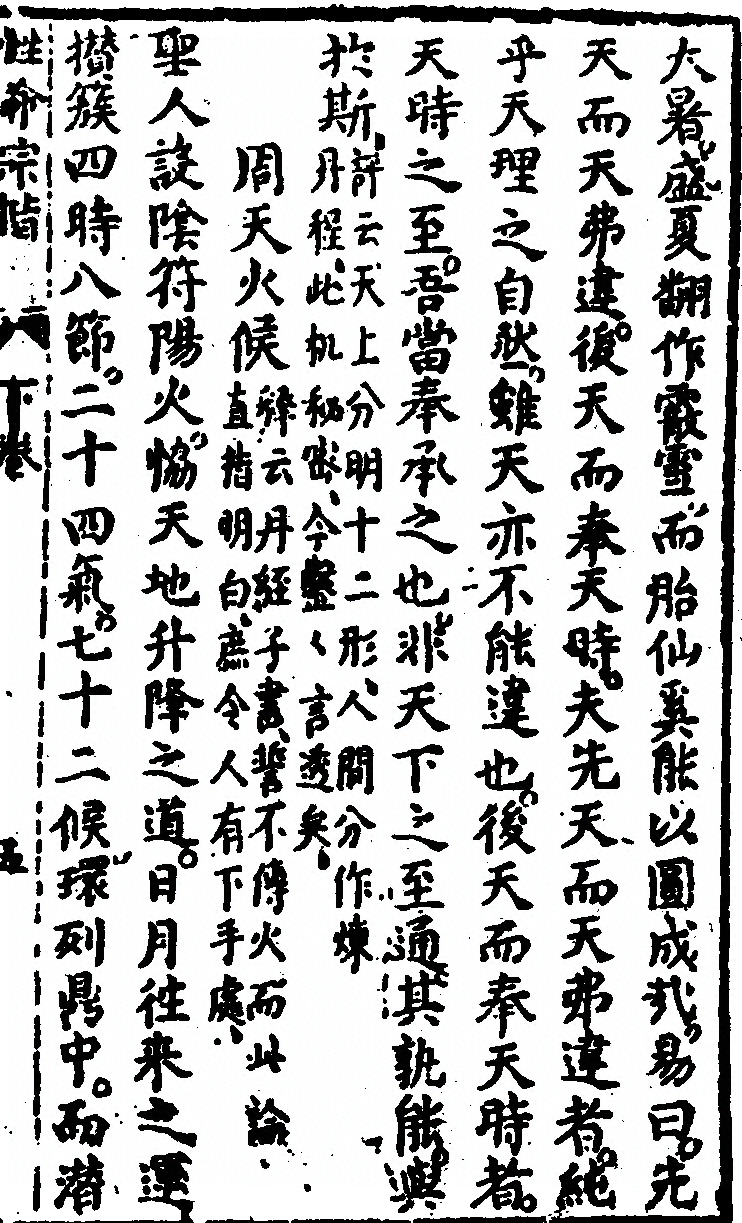 大暑盛夏翻作霰雪而胎仙奚能以圓成哉易曰先
天而天弗違後天而奉天時夫先天而天弗違者純
乎天理之自然雖天亦不能違也後天而奉天時者
天時之至吾當奉承之也非天下之至通其孰能與
於斯
評云天上分明十二形人間分作煉
丹程此机秘密今鑿〻言透矣
周天火候
解云丹經子書誓不傳火而此論
直指明白庶令人有下手處
聖人設陰符陽火恊天地升降之道日月徃来之運
攅簇四時八節二十四氣七十二候環列鼎中而潜
性命宗指
下巻
五